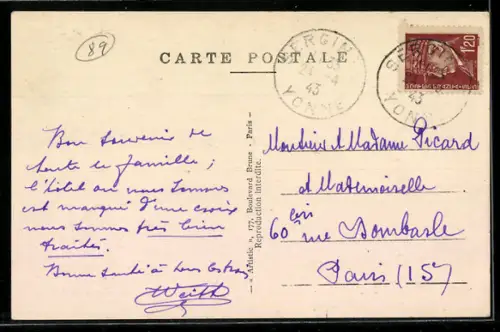 89
CARTE POSTALE
SERGINES
YONNE
43
SERGINES
43
YONNE
1F20
Bon souvenir de
toute la famille ;
l'hôtel ou nous sommes
est marqué d'une croix
nous sommes très bien
traités.
Bonne santé à tous
"Artistic", 177, Boulevard Brune - Paris -
Reproduction interdite.
Monsieur & Madame Picard
& Mademoiselle
60 rue Dombasle
Paris (15)